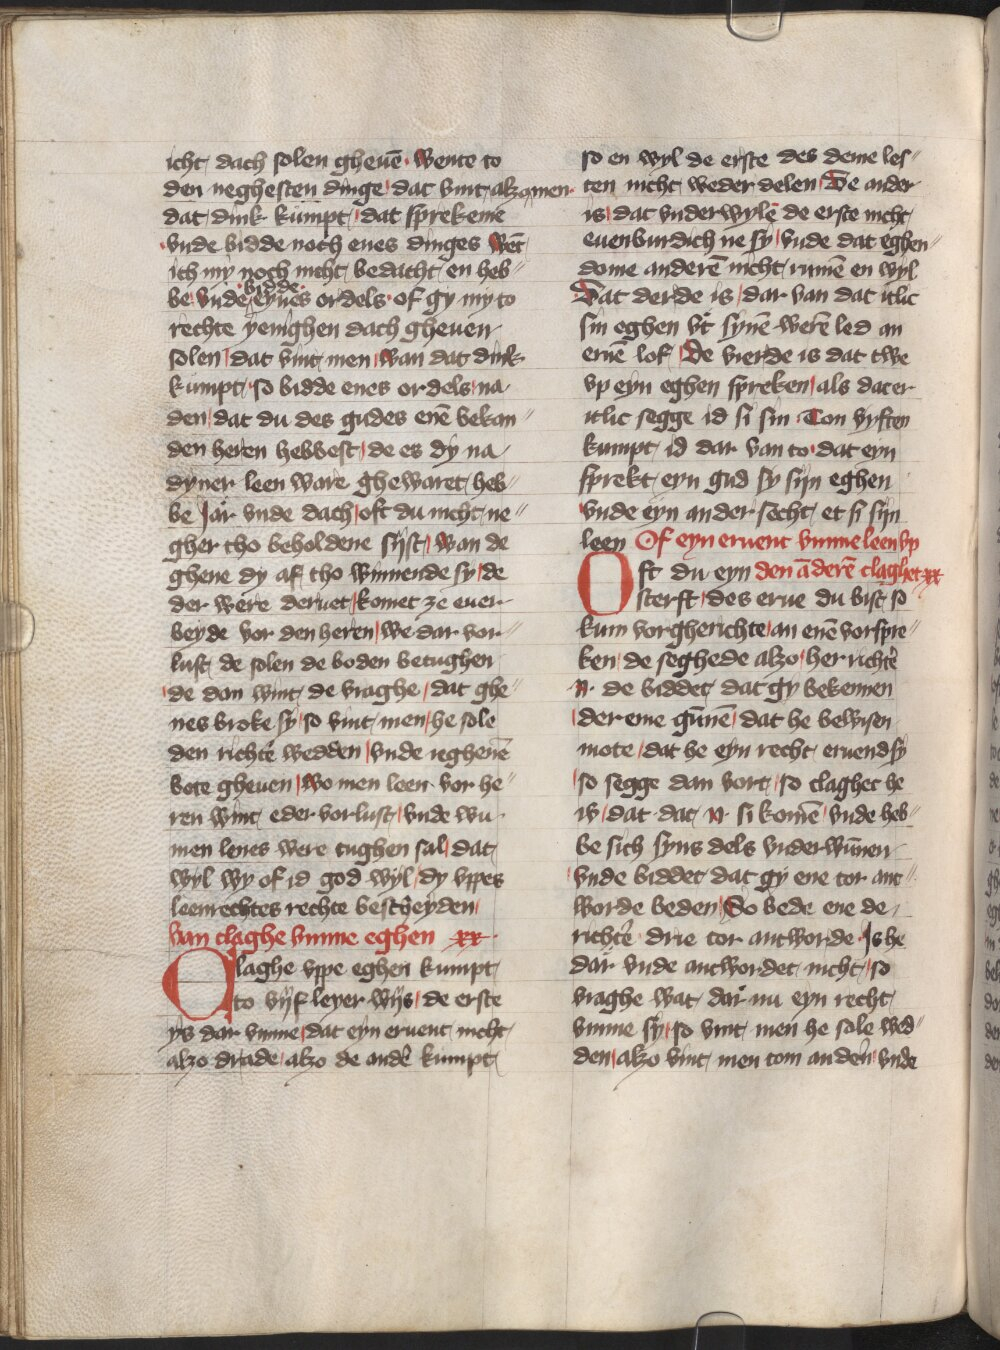 icht dach solen gheuē · wente to
den neghesten dinge dat vint alzomen
dat dink kumpt dat sprekene
vnde bidde noch enes dinges wēt
ich my noch nicht bedacht en heb〃
be vnde bidde eynes ordels · of gy my to
rechte yenighen dach gheuen
solen dat vint men wan dat dink
kumpt · so bidde enes ordels na
den dat du des gudes enē bekan〃
den heren hebbest de es dy na
dyner leen ware ghewaret heb〃
be Jar vnde dach oft du nicht ne〃
gher tho beholdene sijst wan de
ghene dy af tho winnende sy de
der were deruet komet ze euer
beyde vor den heren we dar vor〃
lust de solen de boden betughen
de dan wint de vraghe dat ghe〃
nes broke sy so vint men he sole
den richte wedden vnde ieghenē
bote gheuen wo men leen vor he〃
ren wint eder vorlust vnde wu
men lenes were tughen sal dat
wyl wy of id god wyl dy vppes
leenrechtes rechte bescheyden
van claghe vmme eghen xx·
Claghe vppe eghen kumpt
to vyf leyer wijs de erste
ys dar vmme dat eyn eruent nicht
alzo drade alzo de andē kumpt
so en wyl de erste des deme les〃
ten nicht weder delen De ander
is dat vnderwylē de erste nicht
euenburdich ne sy vnde dat eghen〃
dome anderē nicht rumē en wyl
Dat derde is dar van dat itlic
sin eghen vt synē werē led an
enē lof De vierde is dat twe
vp eyn eghen spreken als dat er
itlic segge id si sin Ton vyften
kumpt id dar van to dat eyn
sprekt eyn gud sy sijn eghen
vnde eyn ander secht et si sijn
leen Of eyn eruent vmme leen vp
Oft du eyn den āderē claghet xx
sterft des erue du bist so
kum vor gherichte an enē vorspre〃
ken de seghede alzo her richtē
n· de biddet dat gy bekennen
dereme gūnē dat he bewisen
mote dat he eyn recht eruend sy
so segge dan vort so claghet he
iv dat dat n· si komē vnde heb〃
be sich syns dels vnderwūnen
vnde biddet dat gy ene tor ant〃
worde beden So bede ene de
richtē drie tor antworde Is he
dar vnde antwordet nicht so
vraghe wat dar nu eyn recht
vmme sy so vint men he sole wed〃
den alzo vint men tom andern vnde